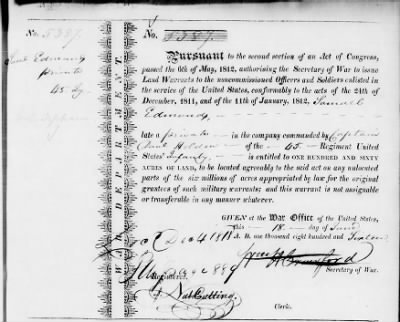 No. 5387.
Saml Edmunds
private
45 Ly
No. 5387.
WAR DEPARTMENT
Pursuant to the second section of an Act of Congress,
passed the 6th of May, 1812, authorising the Secretary of War to issue
Land Warrants to the noncommissioned Officers and Soldiers enlisted in
the service of the United States, conformably to the acts of the 24th of
December, 1811, and of the 11th of January, 1812, Samuel
Edmunds,
late a private in the company commanded by Captain
Holden of the 45 Regiment United
States' Infantry, is entitled to ONE HUNDRED AND SIXTY
ACRES OF LAND, to be located agreeably to the said act on any unlocated
parts of the six millions of acres appropriated by law for the original
grantees of such military warrants; and this warrant is not assignable
or transferable in any manner whatever.
GIVEN at the War Office of the United States,
this 18 day of June
A. D. one thousand eight hundred and Sixteen
Wm H Crawford
Secretary of War.
Nat Cutting.
Clerk.